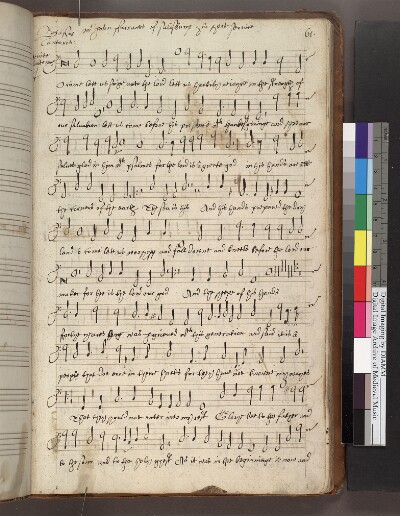 O come lett us singe unto the lord lett us hartely reioyce in the strength of
our saluation lett us come before his presence wth thanksgiuinge and shew our
selues glad in him wth psalmes for the lord is a greate god in his hands are all
the corners of the earth The sea is his And his hands prepared the dry
land O come lett us worshipp and fall downe and kneele before the lord our
maker for he is the lord our god And the sheepe of his hands
fortie yeares long was I grieued wth this generation and said it is a
people that doe erre in there hartes for they haue not knowne my wayes
that they should not enter into my rest Glory be to the father and
to the sonn and to the holy ghost As it was in the beginninge is now and
Digital Imaging by DIAMM
Digital Image Archive of Medieval Music